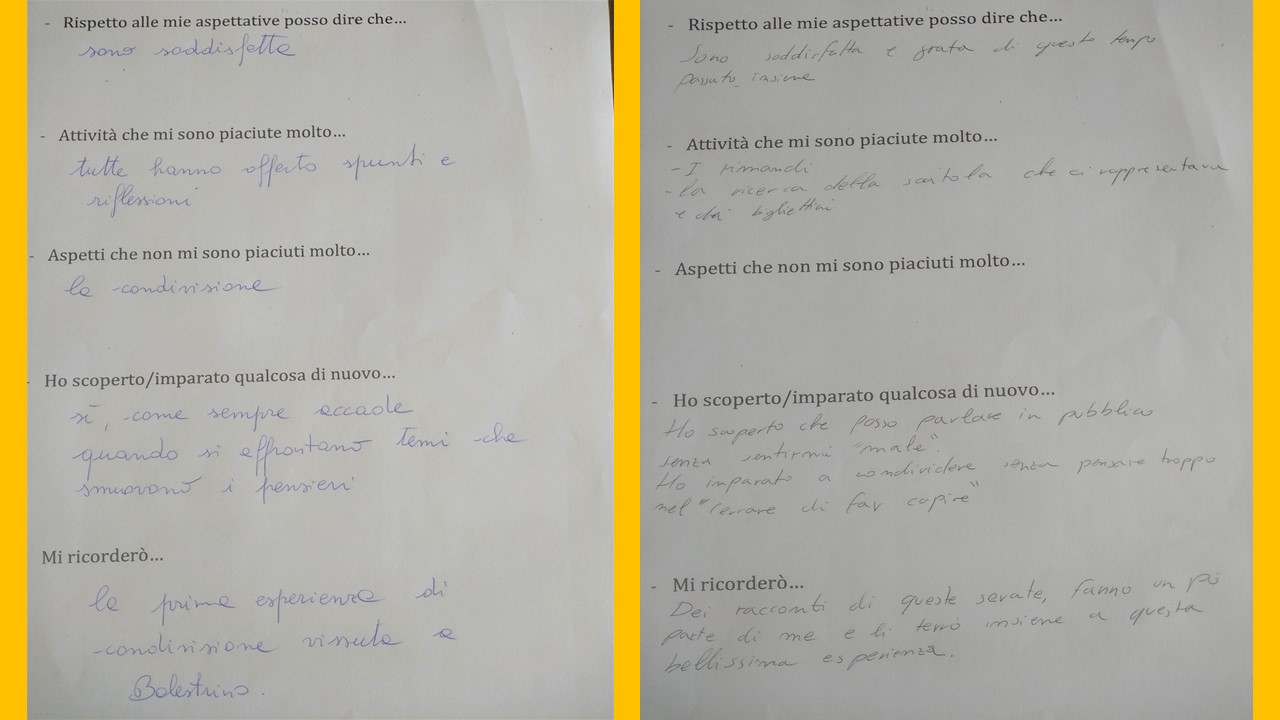 - Rispetto alle mie aspettative posso dire che...
sono soddisfatta
- Attività che mi sono piaciute molto...
tutte hanno offerto spunti e
riflessioni
- Aspetti che non mi sono piaciuti molto...
la condivisione
- Ho scoperto/imparato qualcosa di nuovo...
sì, come sempre accade
quando si affrontano temi che
smuovono i pensieri
Mi ricorderò...
la prima esperienza di
condivisione vissuta a
Balestrino.
- Rispetto alle mie aspettative posso dire che...
Sono soddisfatta e grata di questo tempo
passato insieme
- Attività che mi sono piaciute molto...
- I rimandi
- la ricerca della scatola che ci rappresentava
e dei bigliettini
- Aspetti che non mi sono piaciuti molto...
- Ho scoperto/imparato qualcosa di nuovo...
Ho scoperto che posso parlare in pubblico
senza sentirmi "male".
Ho imparato a condividere senza pensare troppo
nel "cercare di far capire"
- Mi ricorderò...
Dei racconti di queste serate, fanno un pò
parte di me e li terrò insieme a questa
bellissima esperienza.